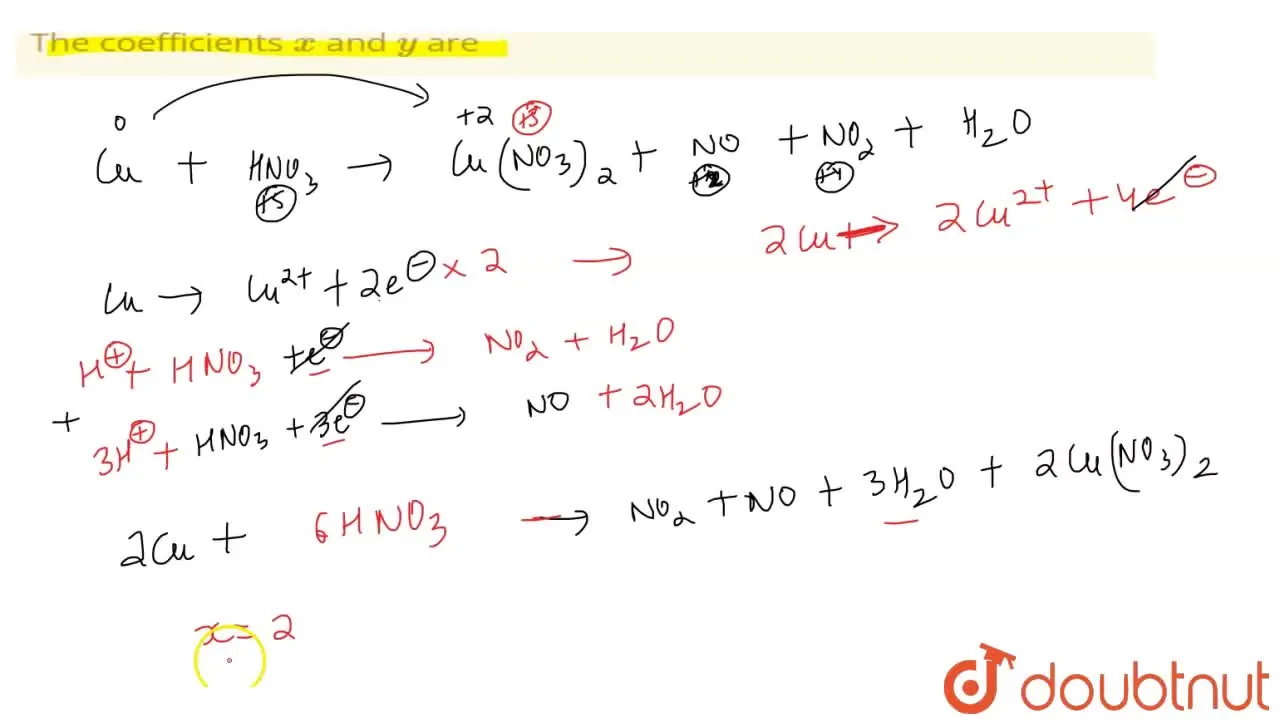 The coefficients x and y are
0 +2 +5
Cu + HNO3 → Cu(NO3)2 + NO + NO2 + H2O
+5 +2 +4
2Cu → 2Cu2+ + 4e⊖
Cu → Cu2+ + 2e⊖ × 2 →
H⊕ + HNO3 + e⊖ → NO2 + H2O
+ 3H⊕ + HNO3 + 3e⊖ → NO + 2H2O
2Cu + 6HNO3 → NO2 + NO + 3H2O + 2Cu(NO3)2
x = 2
doubtnut